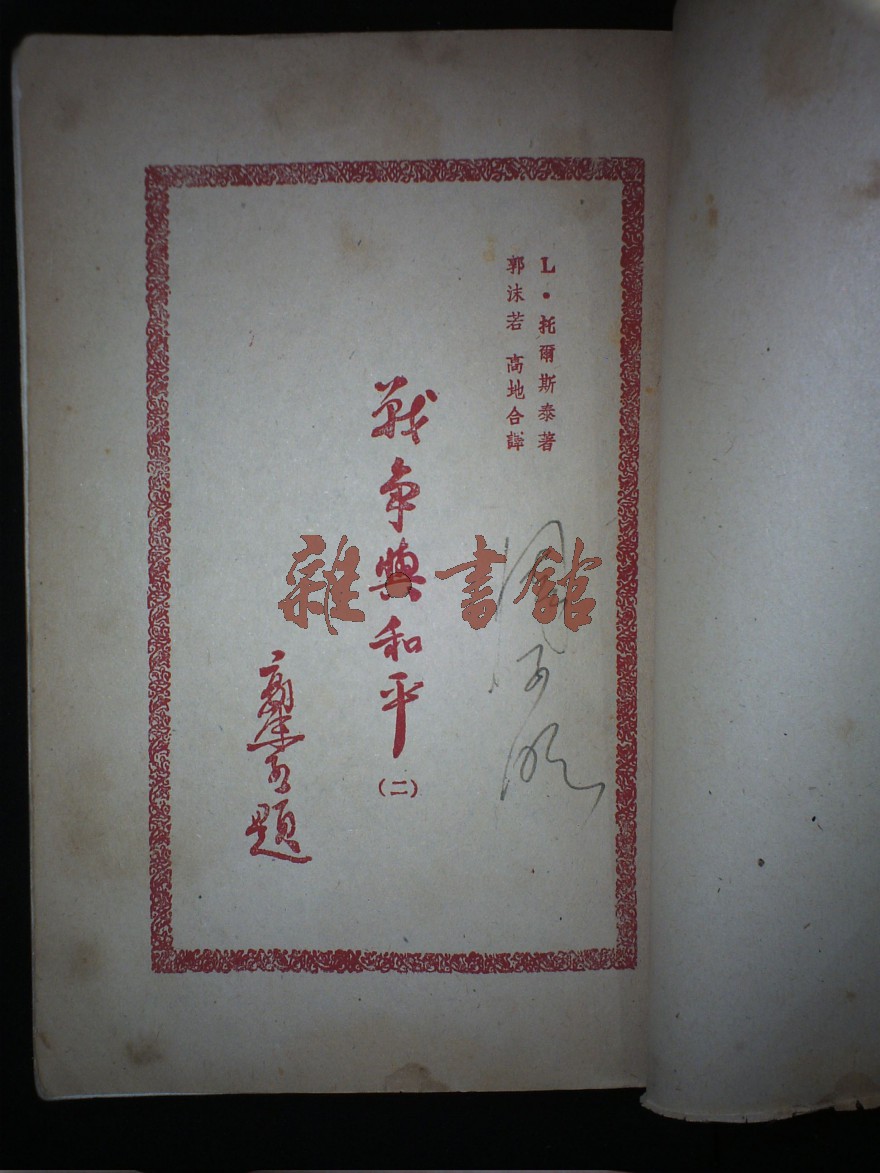 L·托爾斯泰著
郭沫若 高地合譯
戰争與和平
(二)
郭沫若題
雜·書館